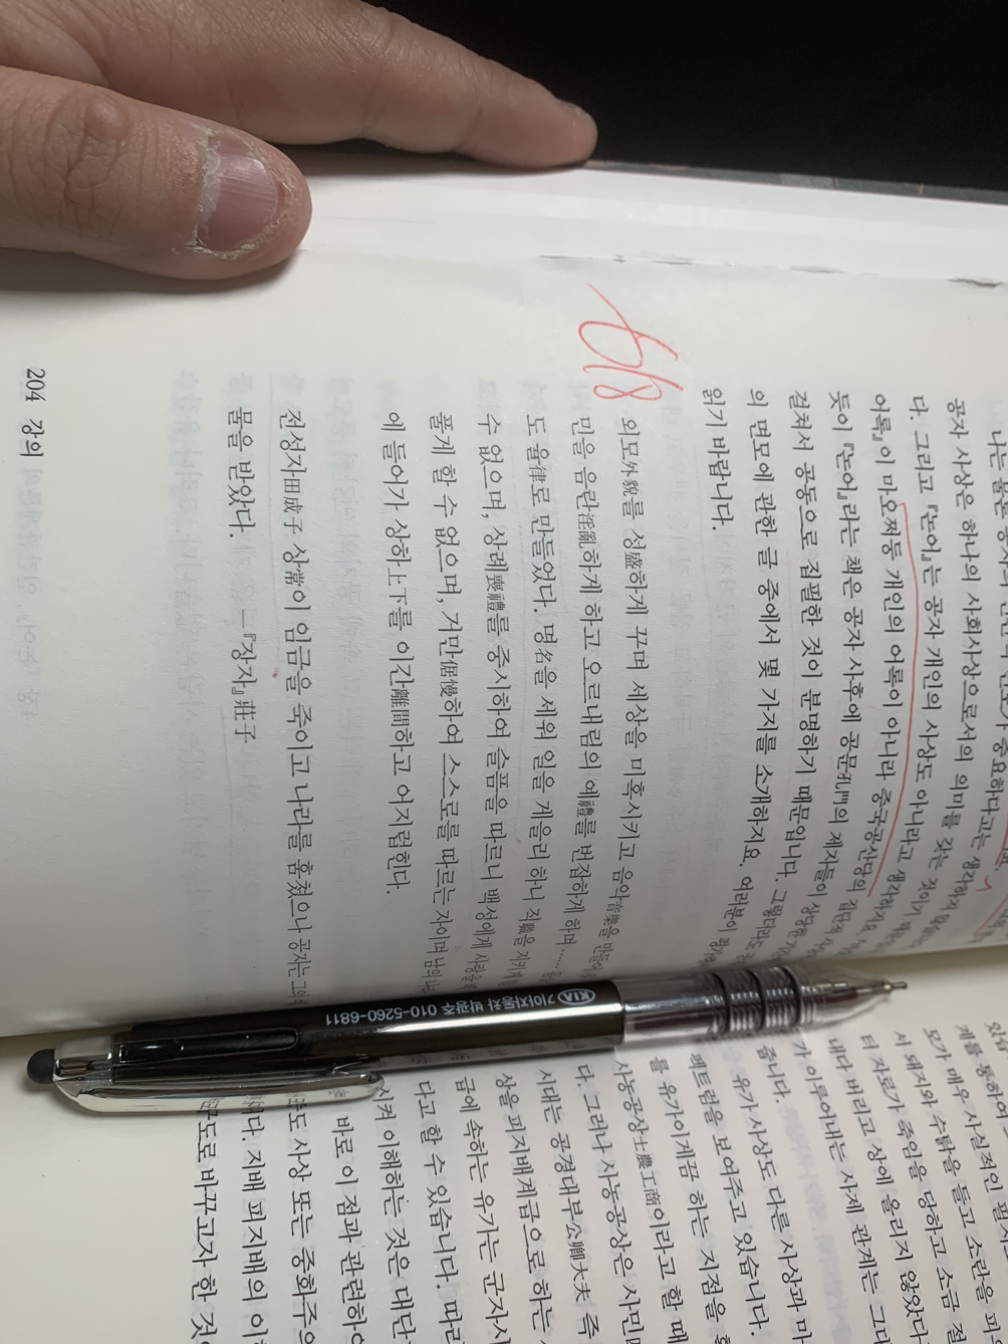 공자 사상은 하나의 사회사상으로서의 의미를 갖는 것이기
다. 그리고 『논어』는 공자 개인의 사상도 아니라고 생각하지요.
어록』이 마오쩌둥 개인의 어록이 아니라 중국공산당의 집단적
듯이 『논어』라는 책은 공자 사후에 공문孔門의 제자들이 상당한
걸쳐서 공동으로 집필한 것이 분명하기 때문입니다. 그렇더라도
의 면모에 관한 글 중에서 몇 가지를 소개하지요. 여러분이
읽기 바랍니다.
외모外貌를 성盛하게 꾸며 세상을 미혹시키고 음악音樂을 만들어
민을 음란淫亂하게 하고 오르내림의 예禮를 번잡하게 하며……
도 율律로 만들었다. 명名을 세워 일을 게을리 하니 직職을 지키게
수 없으며, 상례喪禮를 중시하여 슬픔을 따르니 백성에게 사랑을
풀게 할 수 없으며, 거만倨慢하여 스스로를 따르는 자이며 남의
에 들어가 상하上下를 이간離間하고 어지럽힌다.
전성자田成子 상常이 임금을 죽이고 나라를 훔쳤으나 공자는 그의
물을 받았다. ―『장자』莊子
204 강의
6/8
KIA 기아자동차 박광주 010-5260-6811
모가 매우 사실적인
서 돼지와 수탉을 들고 소란을
터 자로가 죽임을 당하고 소금
내다 버리고 상에 올리지 않았다
가 이루어내는 사제 관계는
줍니다.
유가 사상도 다른 사상과
펙트럼을 보여주고 있습니다.
를 유가이게끔 하는 지점을
사농공상士農工商이라고 할 때
다. 그러나 사농공상은 사민
시대는 공경대부公卿大夫 즉
상을 피지배계급으로 하는
급에 속하는 유가는 군자
다고 할 수 있습니다. 따라
시켜 이해하는 것은 대단
바로 이 점과 관련하여
도 사상 또는 중화주의
하다. 지배 피지배의
구도로 바꾸고자 한